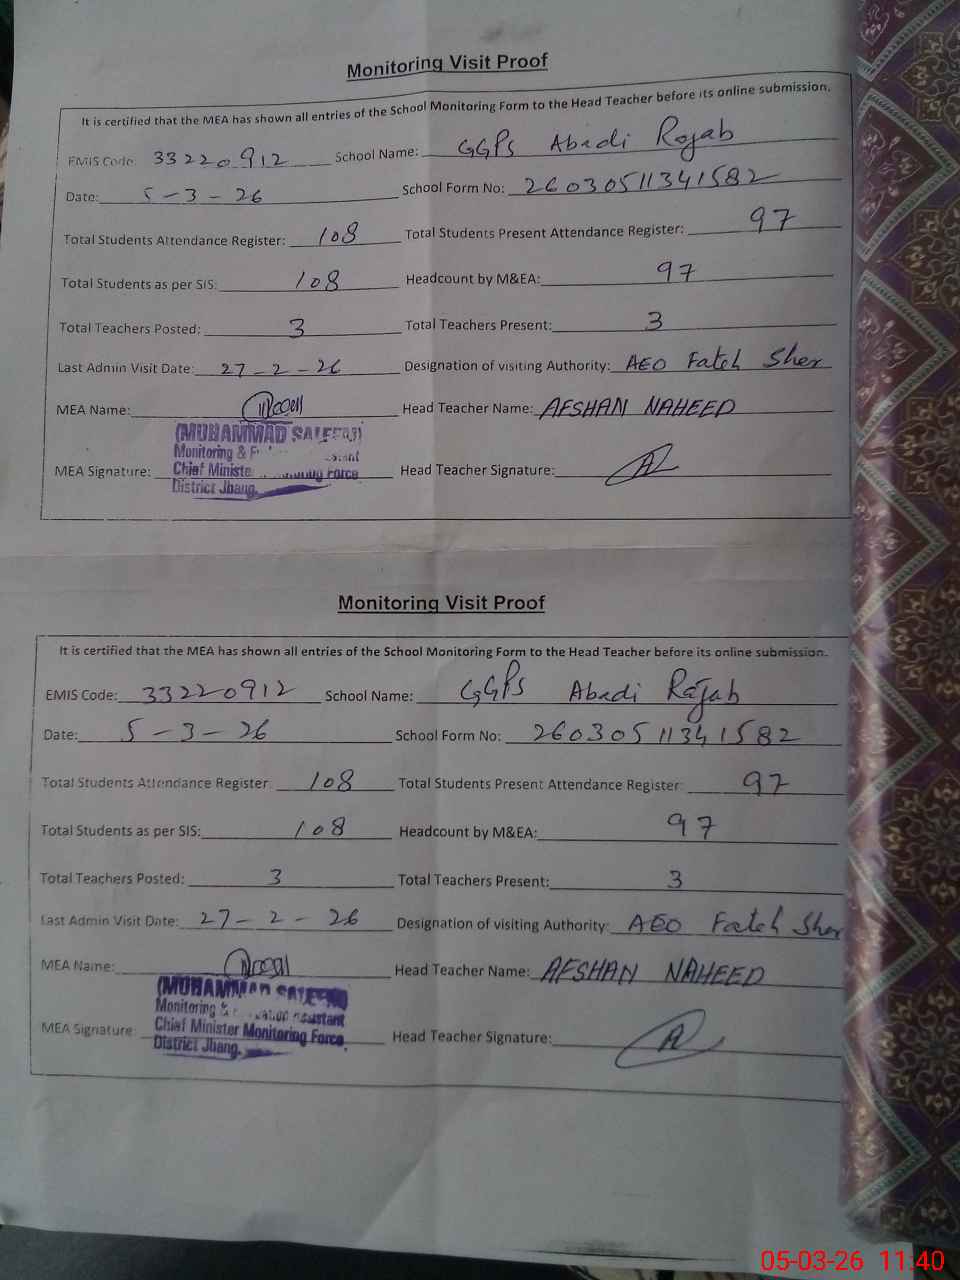 Monitoring Visit Proof
It is certified that the MEA has shown all entries of the School Monitoring Form to the Head Teacher before its online submission.
EMIS Code: 33220912 School Name: GGPS Abadi Rajab
Date: 5-3-26 School Form No: 26030511341582
Total Students Attendance Register: 108 Total Students Present Attendance Register: 97
Total Students as per SIS: 108 Headcount by M&EA: 97
Total Teachers Posted: 3 Total Teachers Present: 3
Last Admin Visit Date: 27-2-26 Designation of visiting Authority: AEO Fateh Sher
MEA Name: Head Teacher Name: AFSHAN NAHEED
(MUHAMMAD SALEEM)
Monitoring &
MEA Signature: Chief Minister Monitoring Force Head Teacher Signature:
District Jhang.
Monitoring Visit Proof
It is certified that the MEA has shown all entries of the School Monitoring Form to the Head Teacher before its online submission.
EMIS Code: 33220912 School Name: GGPS Abadi Rajab
Date: 5-3-26 School Form No: 26030511341582
Total Students Attendance Register 108 Total Students Present Attendance Register: 97
Total Students as per SIS: 108 Headcount by M&EA: 97
Total Teachers Posted: 3 Total Teachers Present: 3
Last Admin Visit Date: 27-2-26 Designation of visiting Authority: AEO Fateh Sher
MEA Name: Head Teacher Name: AFSHAN NAHEED
(MUHAMMAD SALEEM)
Monitoring & Assistant
MEA Signature: Chief Minister Monitoring Force Head Teacher Signature:
District Jhang.
05-03-26 11:40